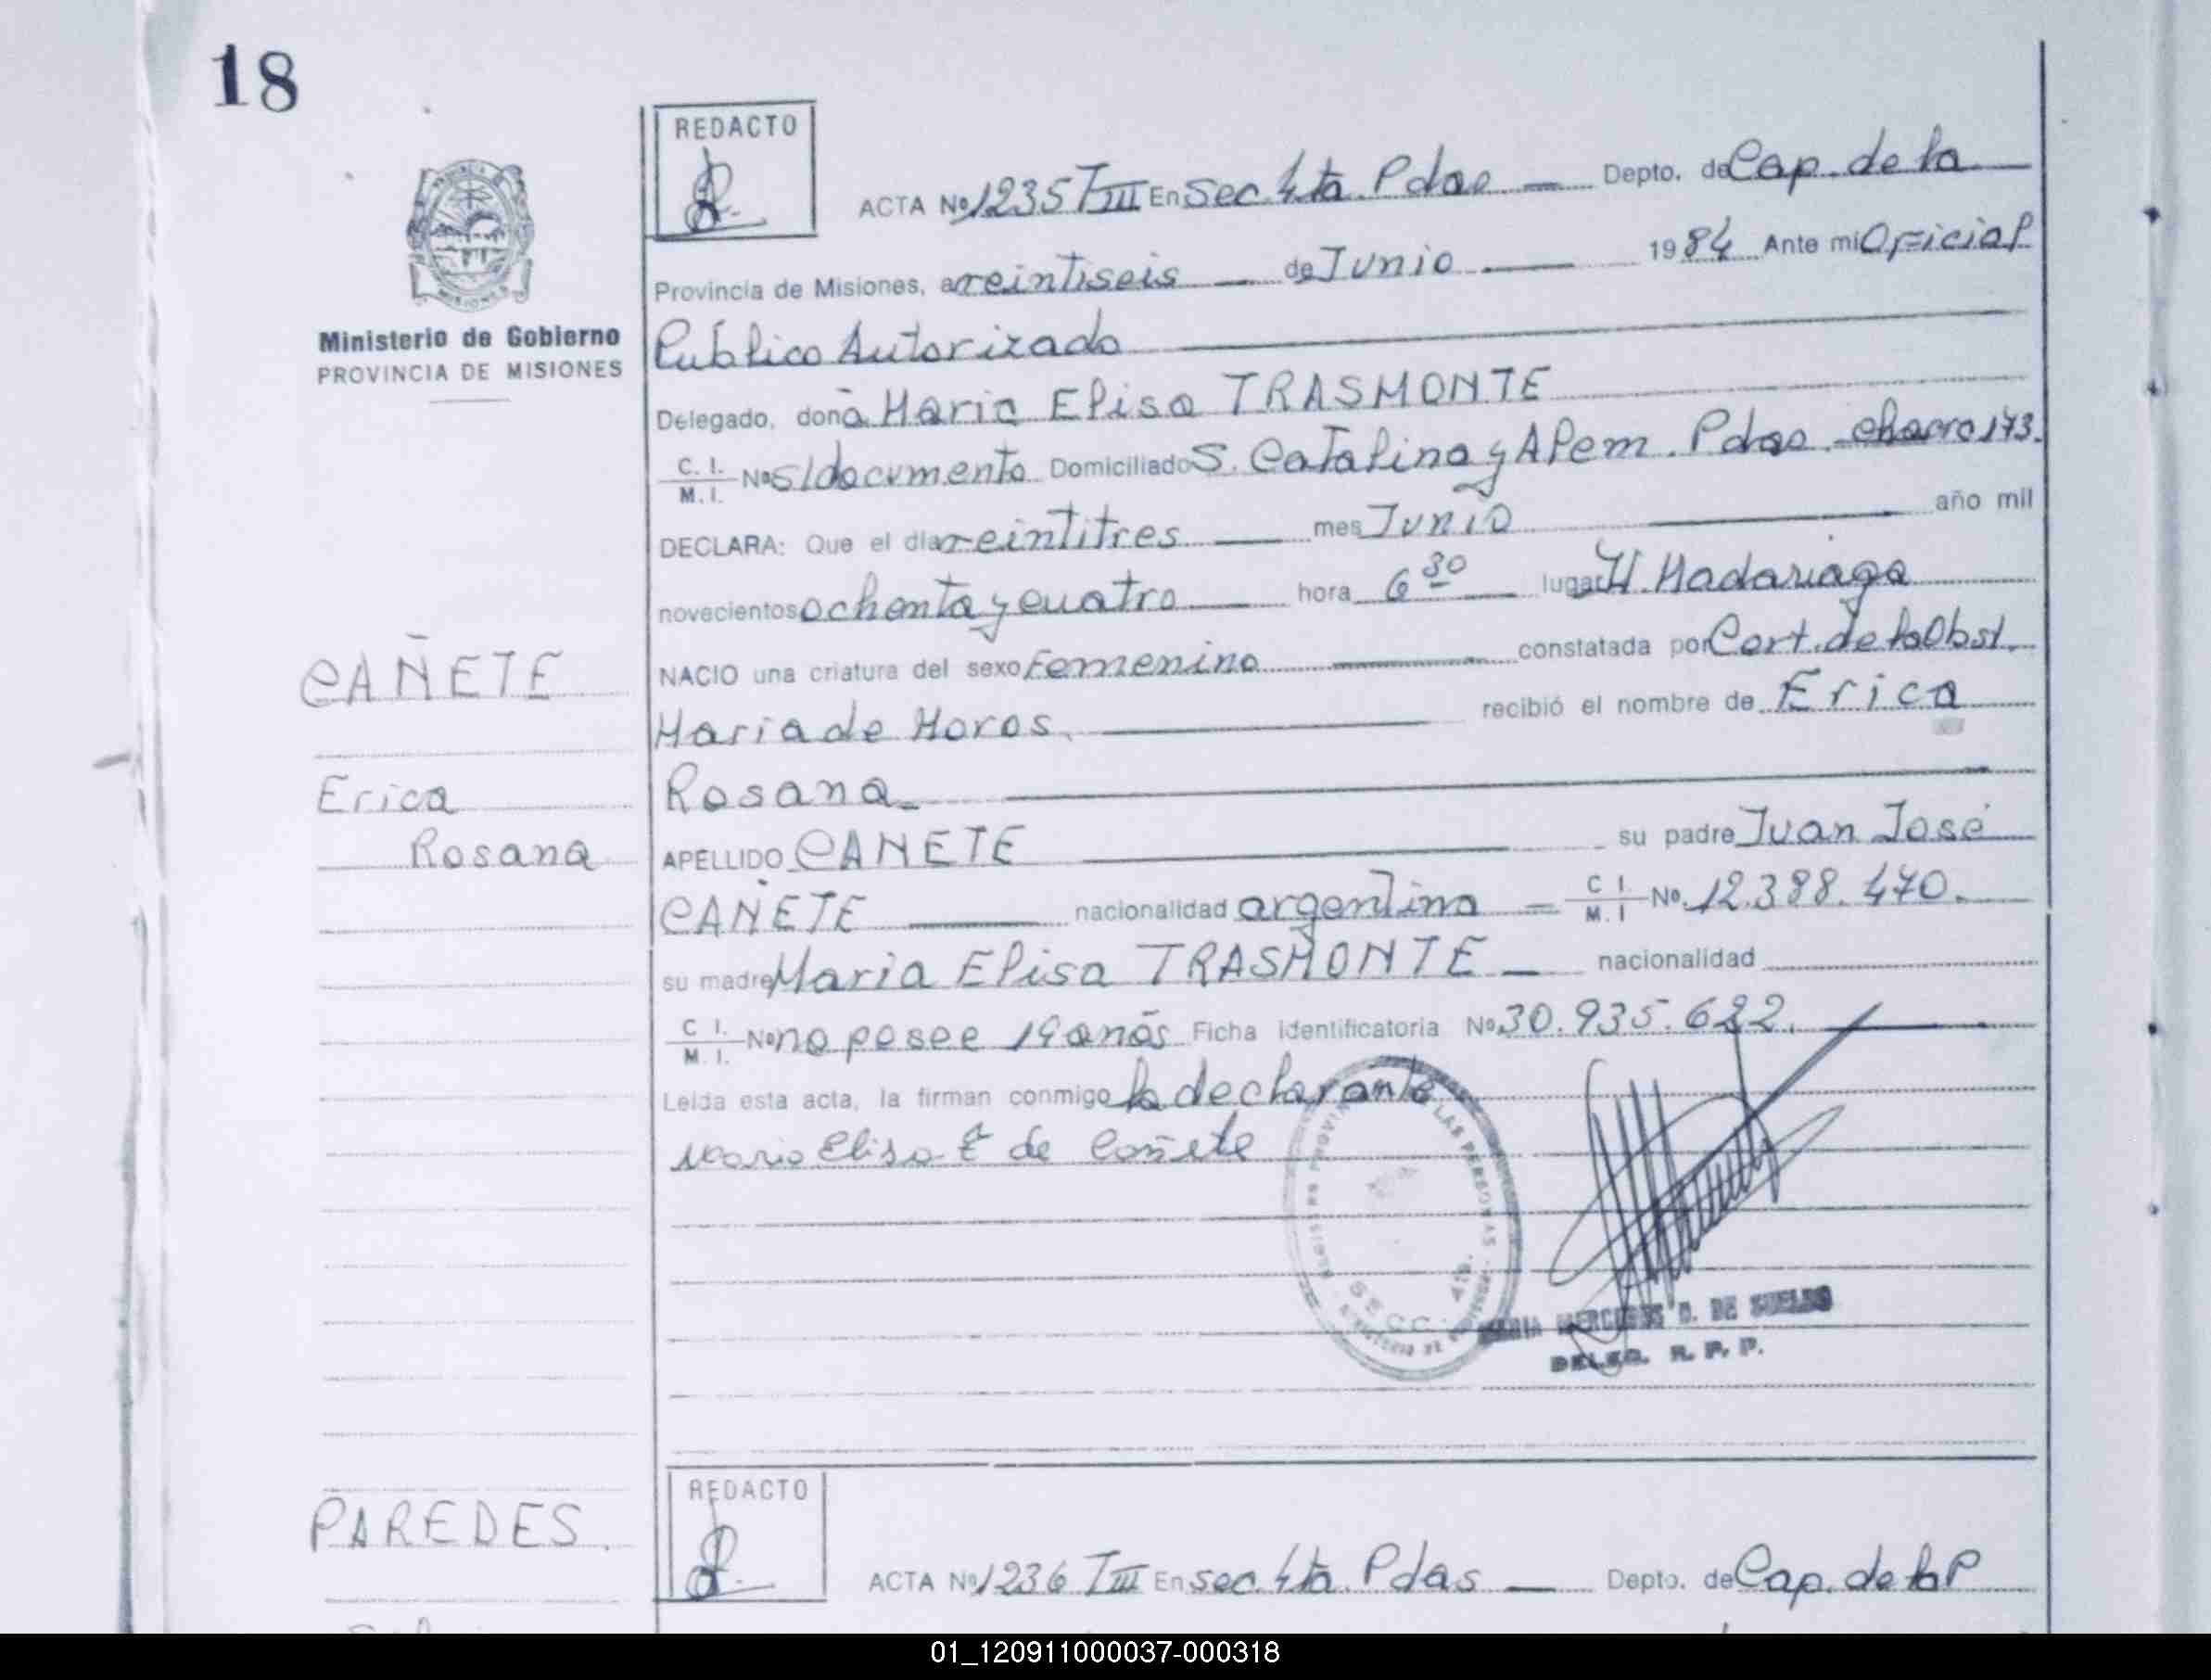 18
REDACTO
ACTA Nº 1235 TIII En Sec. 4ta. Pdas Depto. de Cap. de la
Provincia de Misiones, a veintiseis de Junio 1984 Ante mi Oficial
Publico Autorizado
Ministerio de Gobierno
PROVINCIA DE MISIONES
Delegado, doña Maria Elisa TRASMONTE
C. I. M. I. Nº S/documento Domiciliado S. Catalina y Alem. Pdas. chacra 173.
DECLARA: Que el día veintitres mes Junio año mil
novecientos ochenta y cuatro hora 6 30 lugar H. Madariaga
NACIO una criatura del sexo Femenino constatada por Cert. de la Obst.
CAÑETE
Maria de Moros. recibió el nombre de Erica
Erica
Rosana
Rosana
APELLIDO CAÑETE su padre Juan José
CAÑETE nacionalidad argentina C I. M. I Nº. 12.388.470.
su madre Maria Elisa TRASMONTE nacionalidad
C I. M. I. Nº no posee 19 años Ficha identificatoria Nº 30.935.622.
Leída esta acta, la firman conmigo la declarante
Maria Elisa T de Cañete
LAS PERSONAS
SECC. 4ta.
MARIA MERCEDES D. DE SUELDO
DELEG. R. P. P.
REDACTO
PAREDES.
ACTA Nº 1236 TIII En sec. 4ta. Pdas Depto. de Cap. de la P
01_120911000037-000318